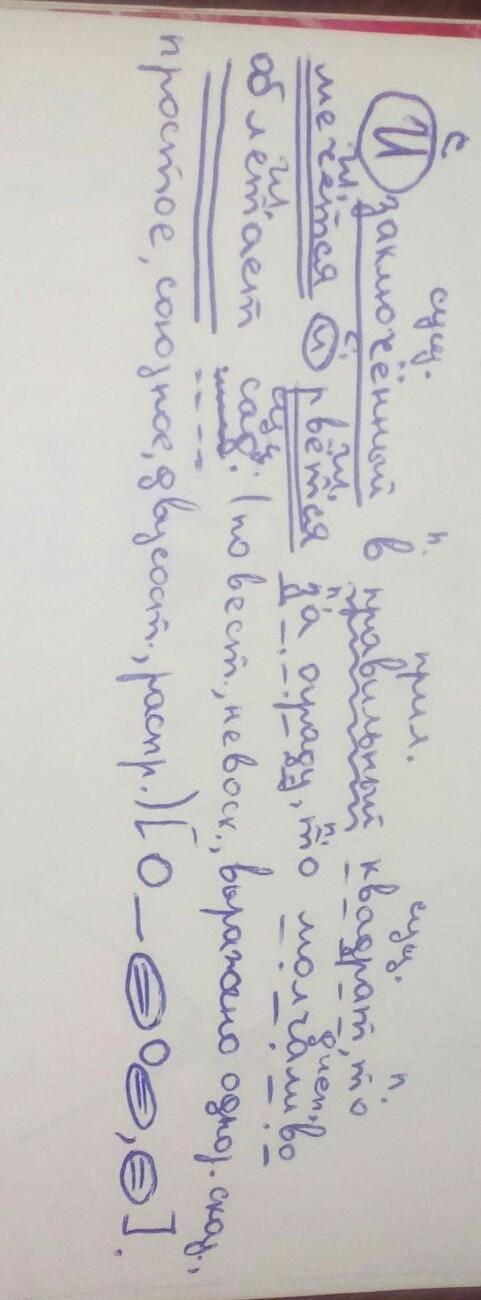 с. сущ. п. прил. сущ. п.
И заключённый в правильный квадрат, то
мечется и рвётся за ограду, то молчаливо
облетает сад. (повест., невоск., выражено одног. сказ.,
простое, союзное, двусост., распр.) [О — О О О, О].